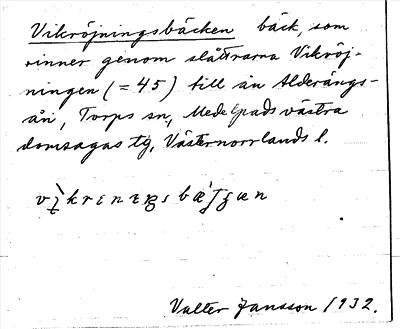 Vikröjningsbäcken bäck, som
rinner genom slåttrarna Vikröj-
ningen (= 45) till ån Alderängs-
ån, Torps sn, Medelpads västra
domsagas tg, Västernorrlands l.
Valter Jansson 1932.